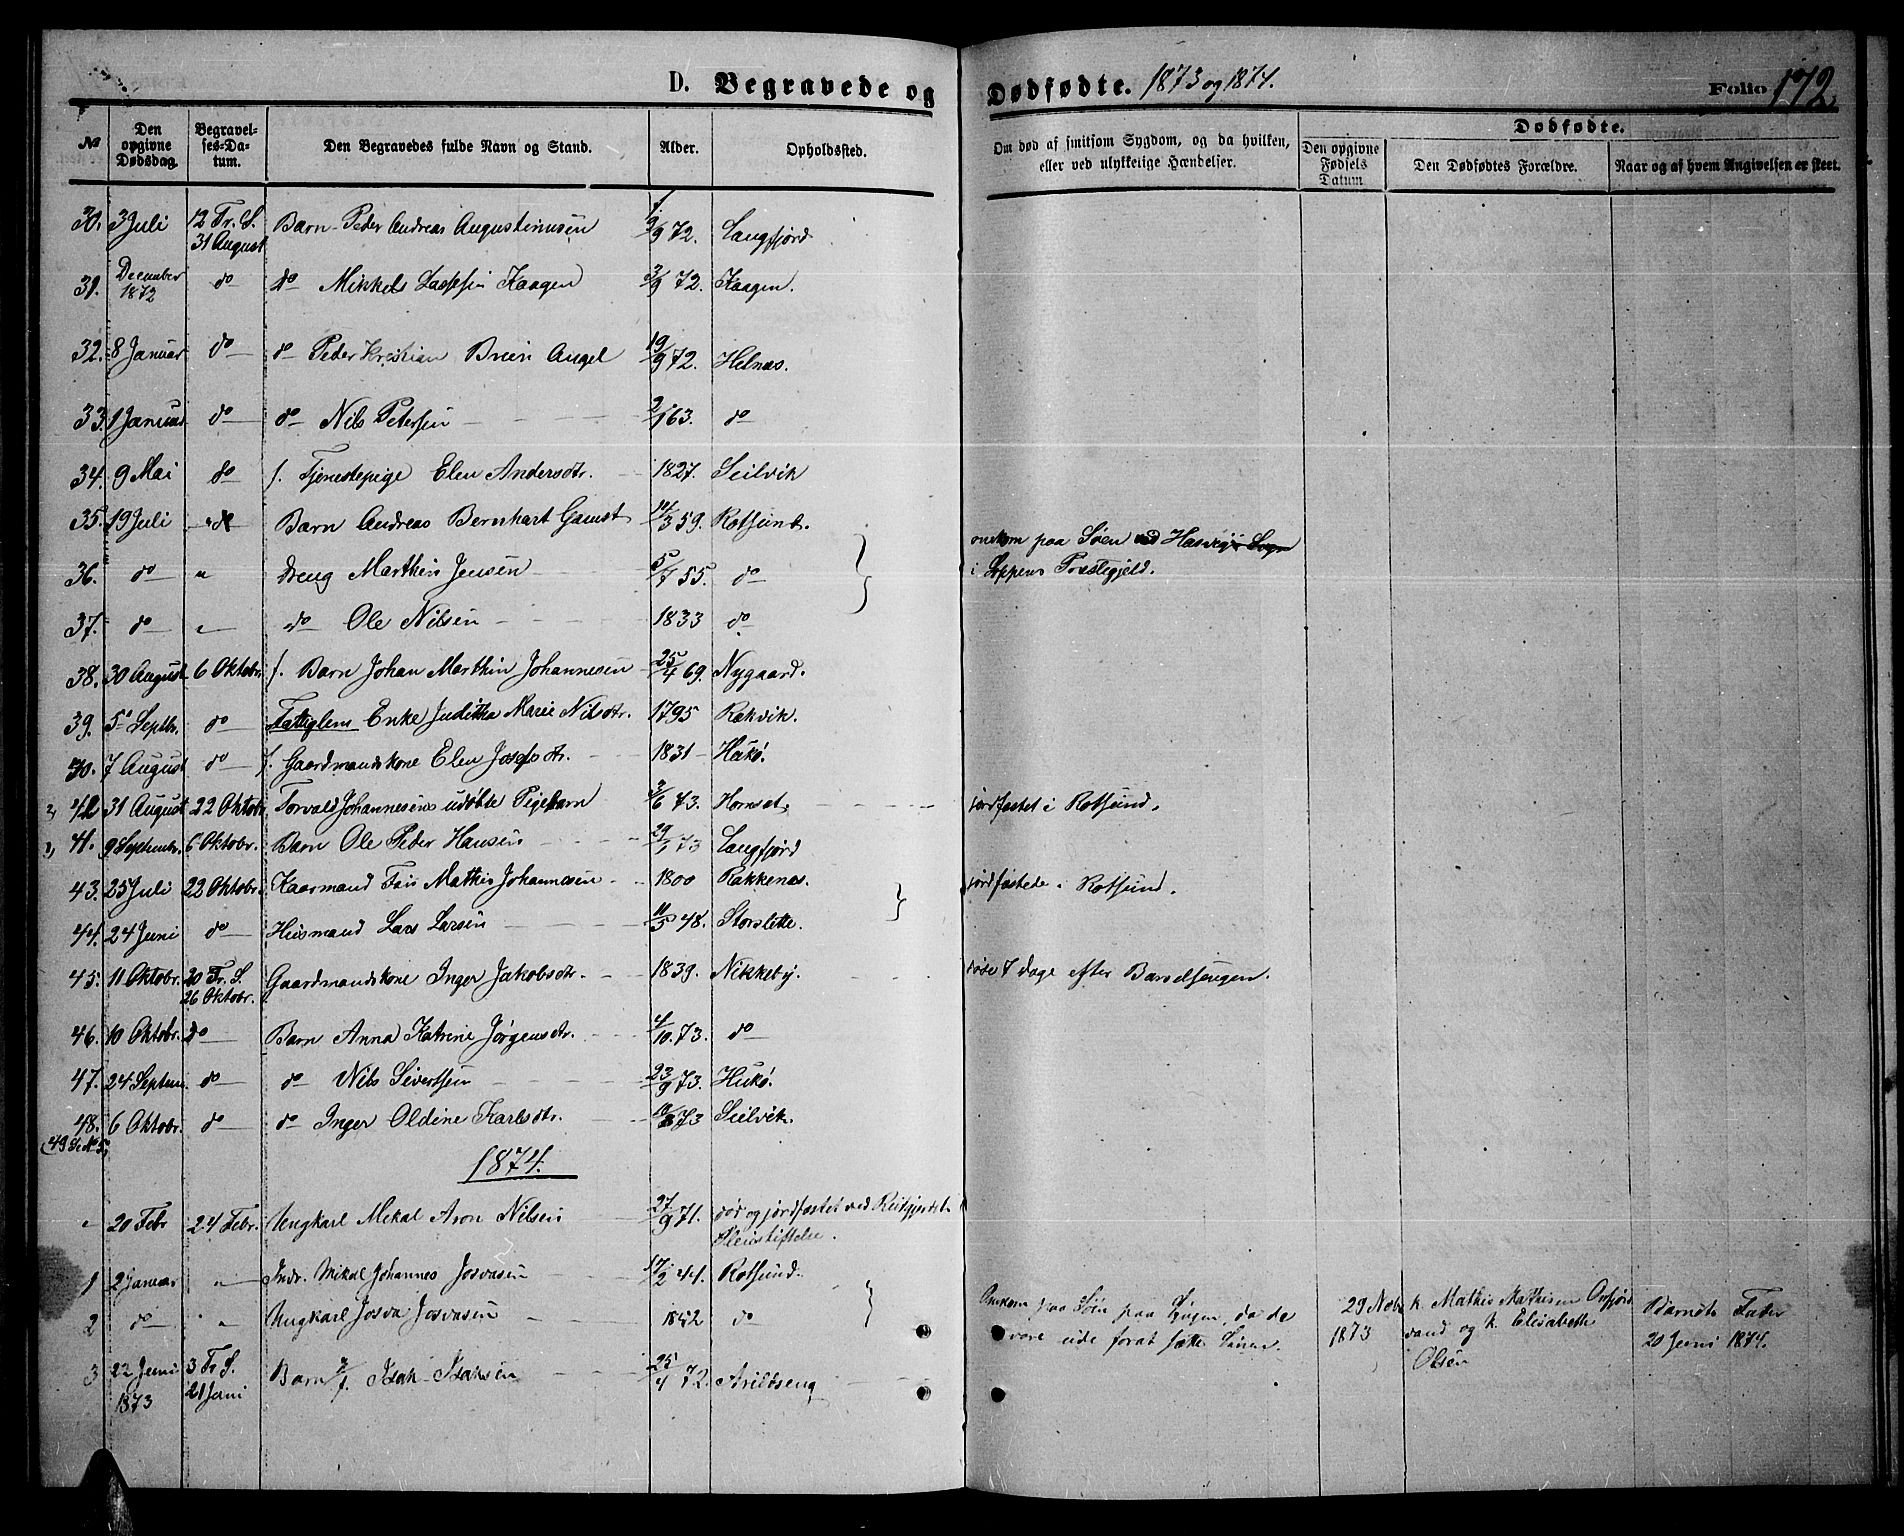 D. Begravede og Dødfødte. 1873 og 1874. Folio 172.
№ Den opgivne Dødsdag. Begravelses-Datum. Den Begravedes fulde Navn og Stand. Alder. Opholdssted. Om død af smitsom Sygdom, og da hvilken, eller ved ulykkelige Hændelser. Dødfødte. Den opgivne Fødsels Datum Den Dødfødtes Forældre. Naar og af hvem Angivelsen er skeet.
30. 3 Juli 12 Tr. S. 31 August Barn Peder Andreas Augustinusen 9/9 72. Langfjord
31. December 1872 do do Mikkels Lassesen Kaagen 3/9 72. Kaagen.
32. 8 Januar do do Peder Kristian Angel 19/9 72. Helnæs.
33. 1 Januar do do Nils Petersen 2/1 63. do
34. 9 Mai do f. Tjenestepige Elen Andersdtr. 1827. Seilvik
35. 19 Juli do Barn Andreas Bernhart Gamst 14/3 59. Rotsund. omkom paa Søen ved Hasvig Sogn
36. do " Dreng Marthin Jensen 5/7 55. do i Loppens Præstegjeld.
37. do " do Ole Nilsen 1833 do
38. 30 August 6 Oktobr. f. Barn Johan Marthin Johannesen 25/4 69. Nygaard.
39. 5 Septbr. do Fattiglem Enke Juditha Marie Nilsdtr. 1795 Rakvik.
40. 7 August do f. Gaardmandskone Elen Josefsdtr. 1831 Hukø.
2) 42 31 August 22 Oktobr. Torvald Johannesens udøbte Pigebarn 3/6 73. Hornset jordfæstet i Rotsund.
1) 41. 9 Septembr. 6 Oktobr. Barn Ole Peder Hansen 29/1 73 Langfjord
43. 25 Juli 22 Oktobr. Kaarmand Mathis Johannesen 1800 Rakkenæs. jordfæstede i Rotsund.
44. 24 Juni do Husmand Lars Larsen 11/5 48. Storslette.
45. 11 Oktobr. 20 Tr. S. 26 Oktobr. Gaardmandskone Inger Jakobsdtr. 1839. Nikkeby. døde 7 dage efter Barselsengen.
46. 10 Oktobr. do Barn Anna Katrine Jørgensdtr. 4/10 73. do
47. 24 Septem. do do Nils Sivertsen 23/9 73. Hukø.
48. 6 Oktobr. do do Inger Oldine Karlsdtr. 10/8 73 Seilvik.
1874.
" 20 Febr 24 Febr. Ungkarl Mekal Aron Nilsen 27/9 71. død og jordfæstet ved Reitgjerdet Pleiestiftelse.
1 2 Januar " Indr. Mikal Johannes Josvasen 17/2 44. Rotsund. Omkom paa Søen paa Lyngen, da de 29 Nobr 1873 k. Mathis Mathisen Oxfjord vand og k. Elisabeth Olsen Fader 20 Juni 1874.
2 do " Ungkarl Josva Josvasen 1852 do vare ude forat sætte Liner.
3 22 Juni 1873 3 Tr. S. 21 Juni Barn Isak Isaksen 25/4 72. Arildseng